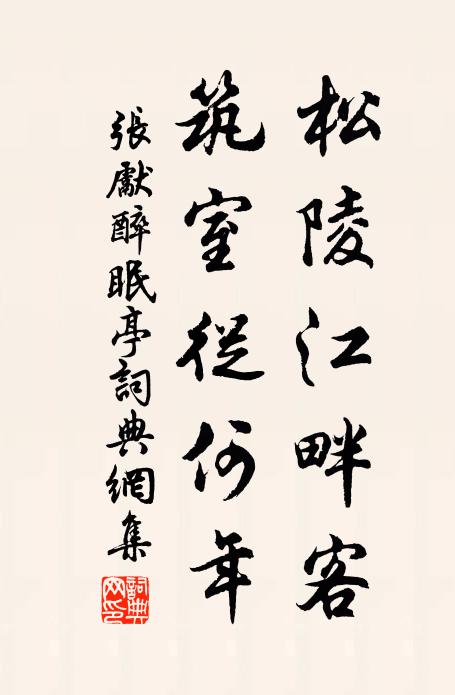 松陵江畔客
筑室從何年
張獻醉眠亭詞典網集
詞典网印